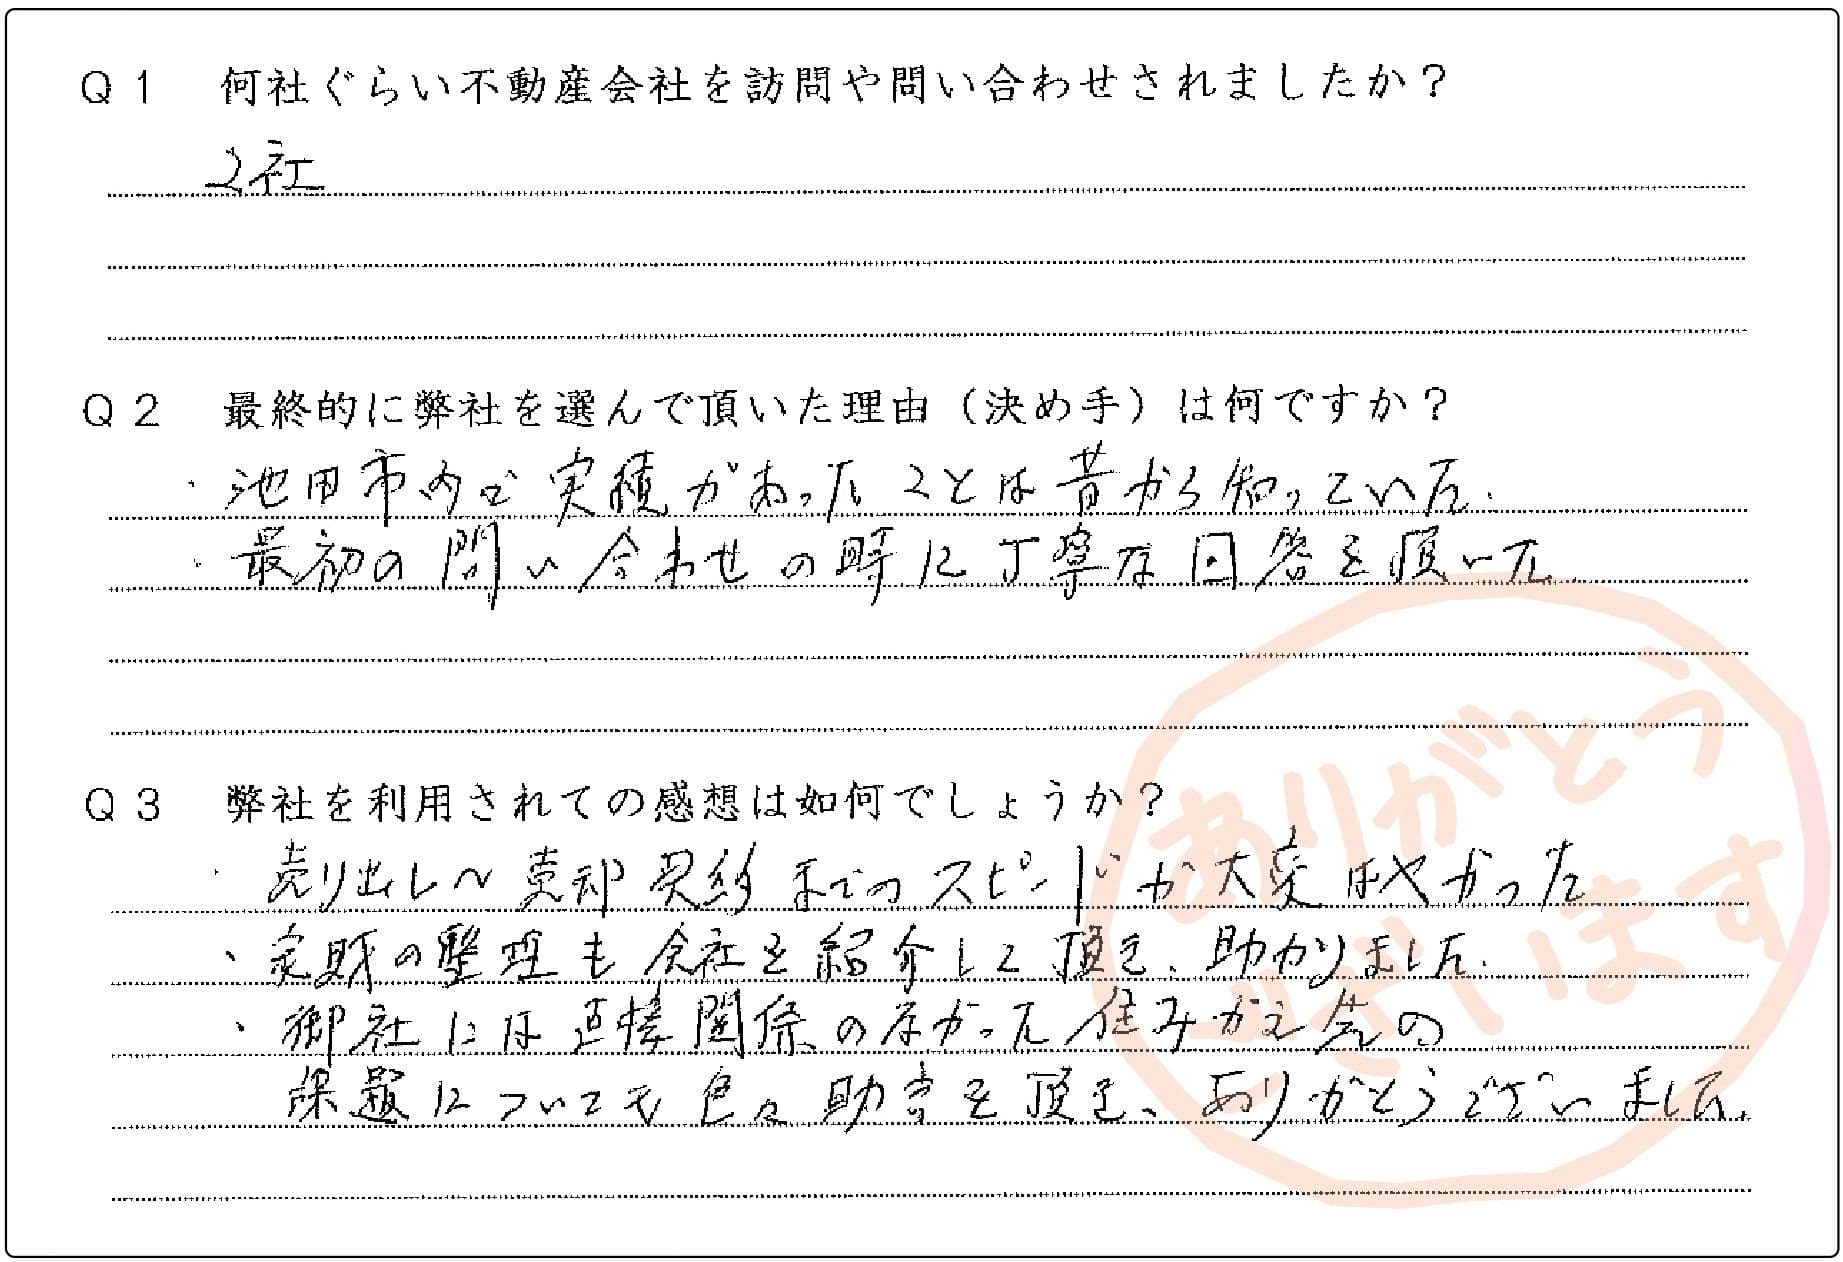 Q1 何社ぐらい不動産会社を訪問や問い合わせされましたか？
2社
Q2 最終的に弊社を選んで頂いた理由（決め手）は何ですか？
・池田市内で実績があったことは昔から知っていた.
・最初の問い合わせの時に丁寧な回答を頂いた.
Q3 弊社を利用されての感想は如何でしょうか？
・売り出し～売却契約までのスピードが大変はやかった
・家財の整理も会社を紹介して頂き、助かりました.
・御社には直接関係のなかった住みかえ先の
課題についても色々助言を頂き、ありがとうございました.
ありがとう
ございます